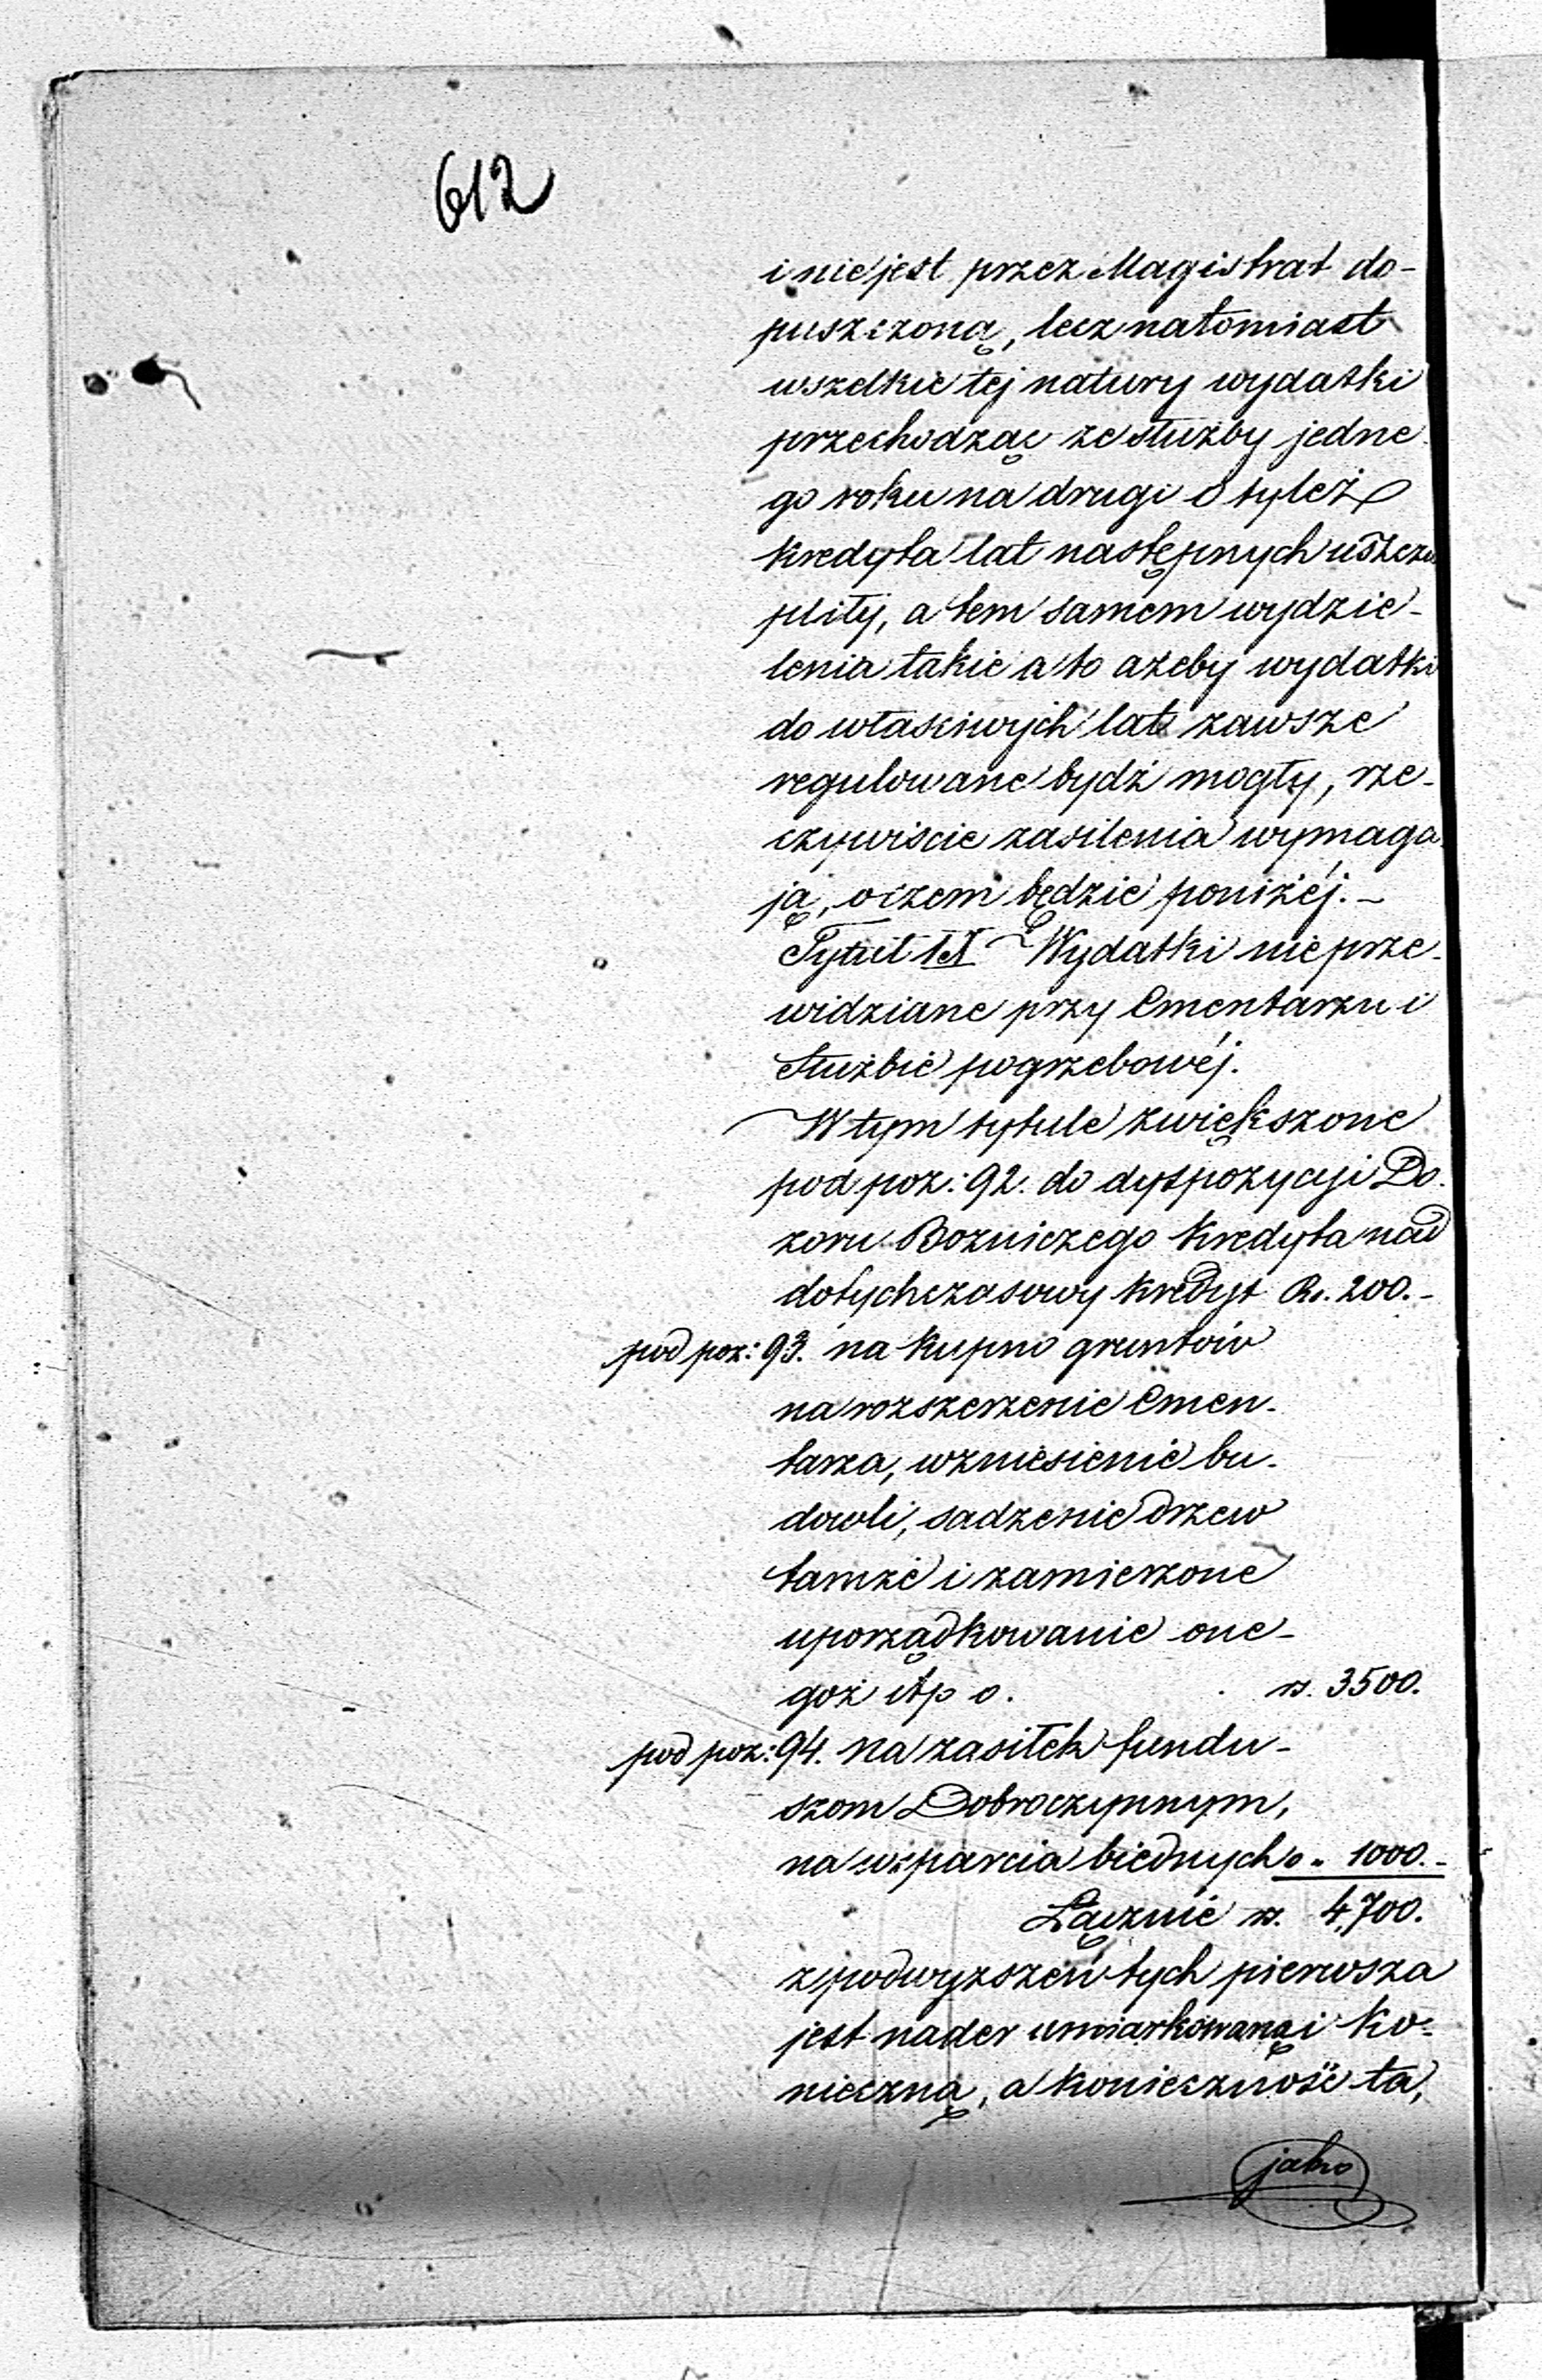 612
i nie jest przez Magistrat do-
puszczoną, lecz natomiast
wszelkie tej natury wydatki
przechodząc ze służby jedne-
go roku na drugi o tyleż
kredyta lat następnych uszczu
pliły, a tem samem wydzie-
lenia takie a to ażeby wydatki
do właściwych lat zawsze
regulowane bydź mogły, rze-
czywiscie zasilenia wymaga
ją, o czem będzie poniżéj. -
Tytuł Wydatki nieprze-
widziane przy Cmentarzu i
służbie pogrzebowéj.
W tym tytule zwiększone
pod poz: 92. do dyspozycyi Do-
zoru Bozniczego Kredyta nad
dotychczasowy kredyt Rs. 200.-
pod poz: 93. na kupno gruntów
na rozszerzenie Cmen-
tarza, wzniesienie bu-
dowli, sadzenie drzew
tamże i zamierzone
uporządkowanie one-
goż itp o. . rs. 3500.
pod poz: 94. na zasiłek fundu-
szom Dobroczynnym,
na wsparcia biednych o „ 1000.-
Łącznie rs. 4,700.
z podwyższeń tych pierwsza
jest nader umiarkowaną i ko-
nieczną, a konieczność ta,
jako